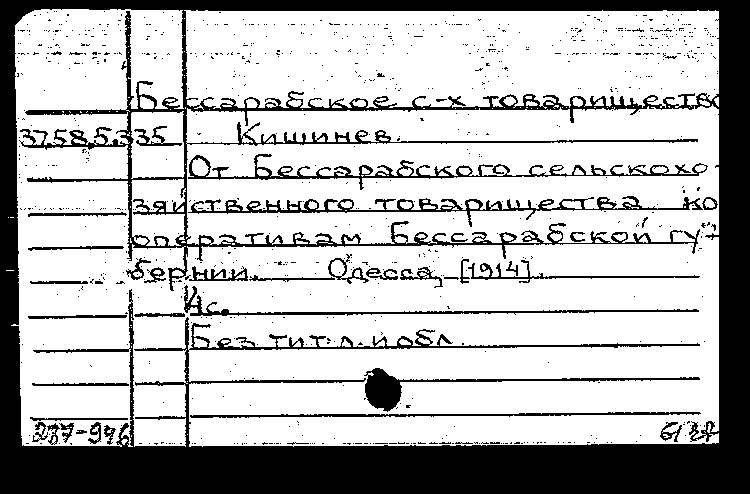 Бессарабское с-х товарищество
3758.5.335 Кишинев.
От Бессарабского сельскохо-
зяйственного товарищества ко
оперативам Бессарабской гу-
бернии. Одесса, [1914].
4с.
Без тит. л. и обл.
237-946